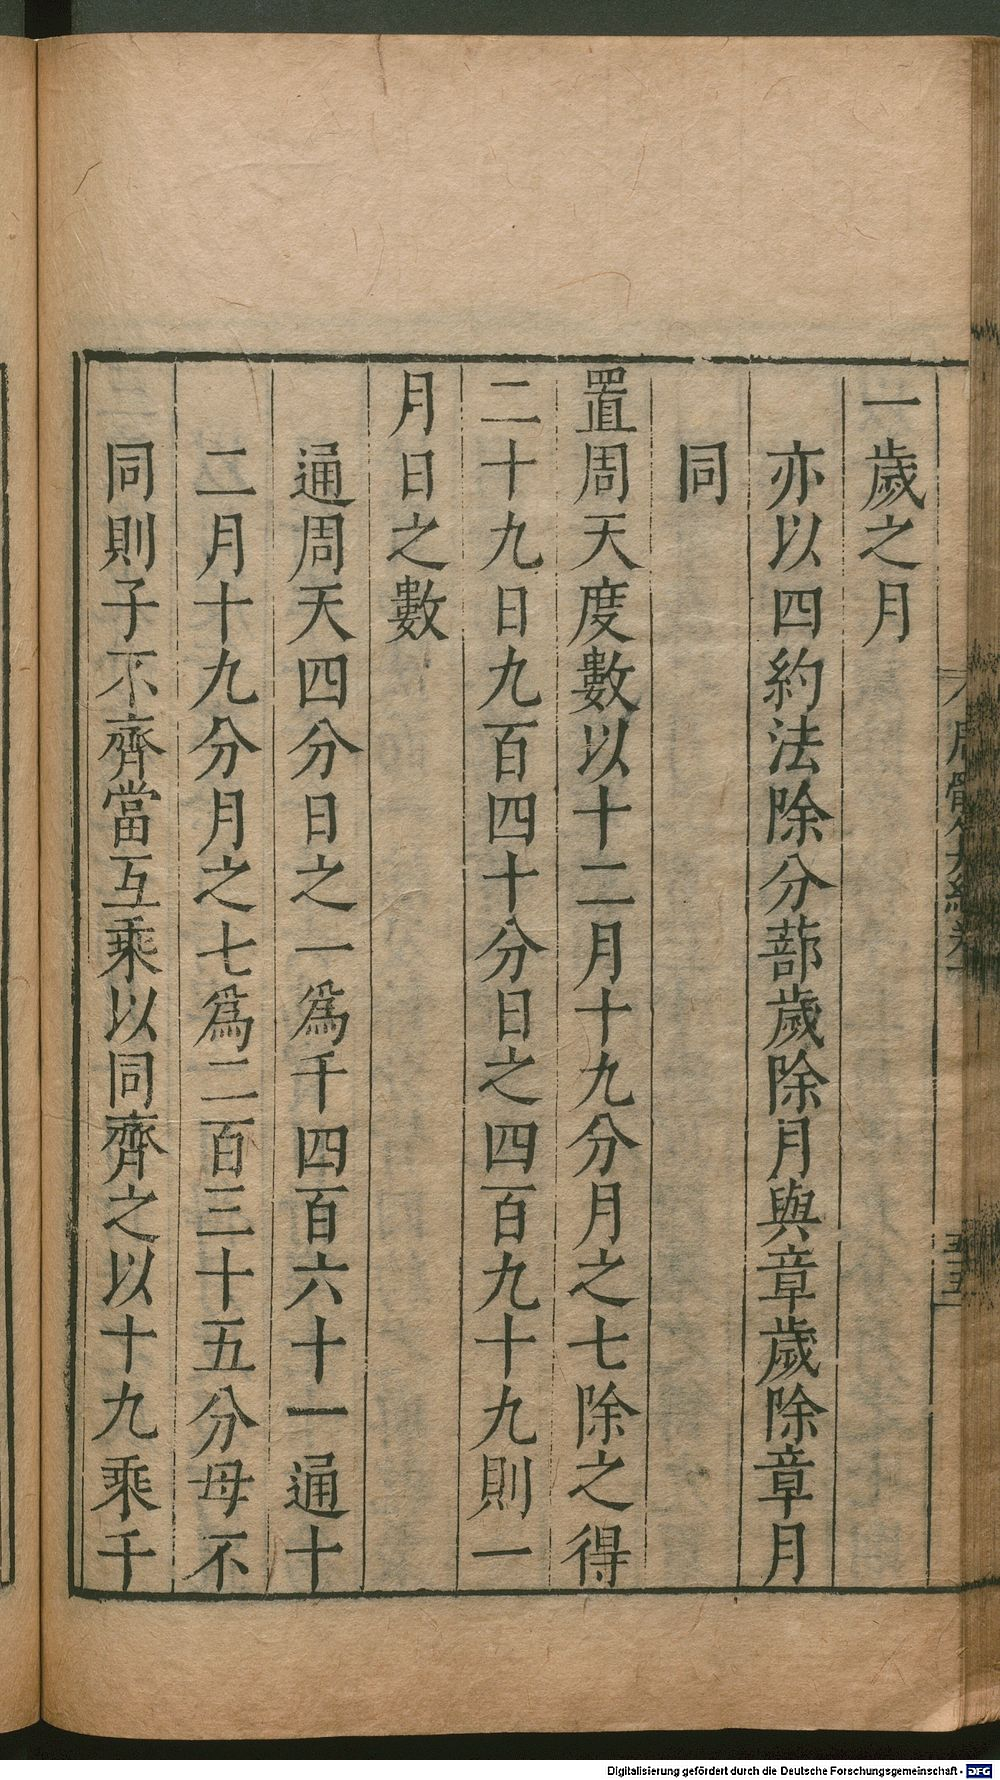 一歲之月
亦以四約法除分蔀歲除月與章歲除章月
同
置周天度數以十二月十九分月之七除之得
二十九日九百四十分日之四百九十九則一
月日之數
通周天四分日之一爲千四百六十一通十
二月十九分月之七爲二百三十五分母不
同則子不齊當互乘以同齊之以十九乘千
Digitalisierung gefördert durch die Deutsche Forschungsgemeinschaft - DFG